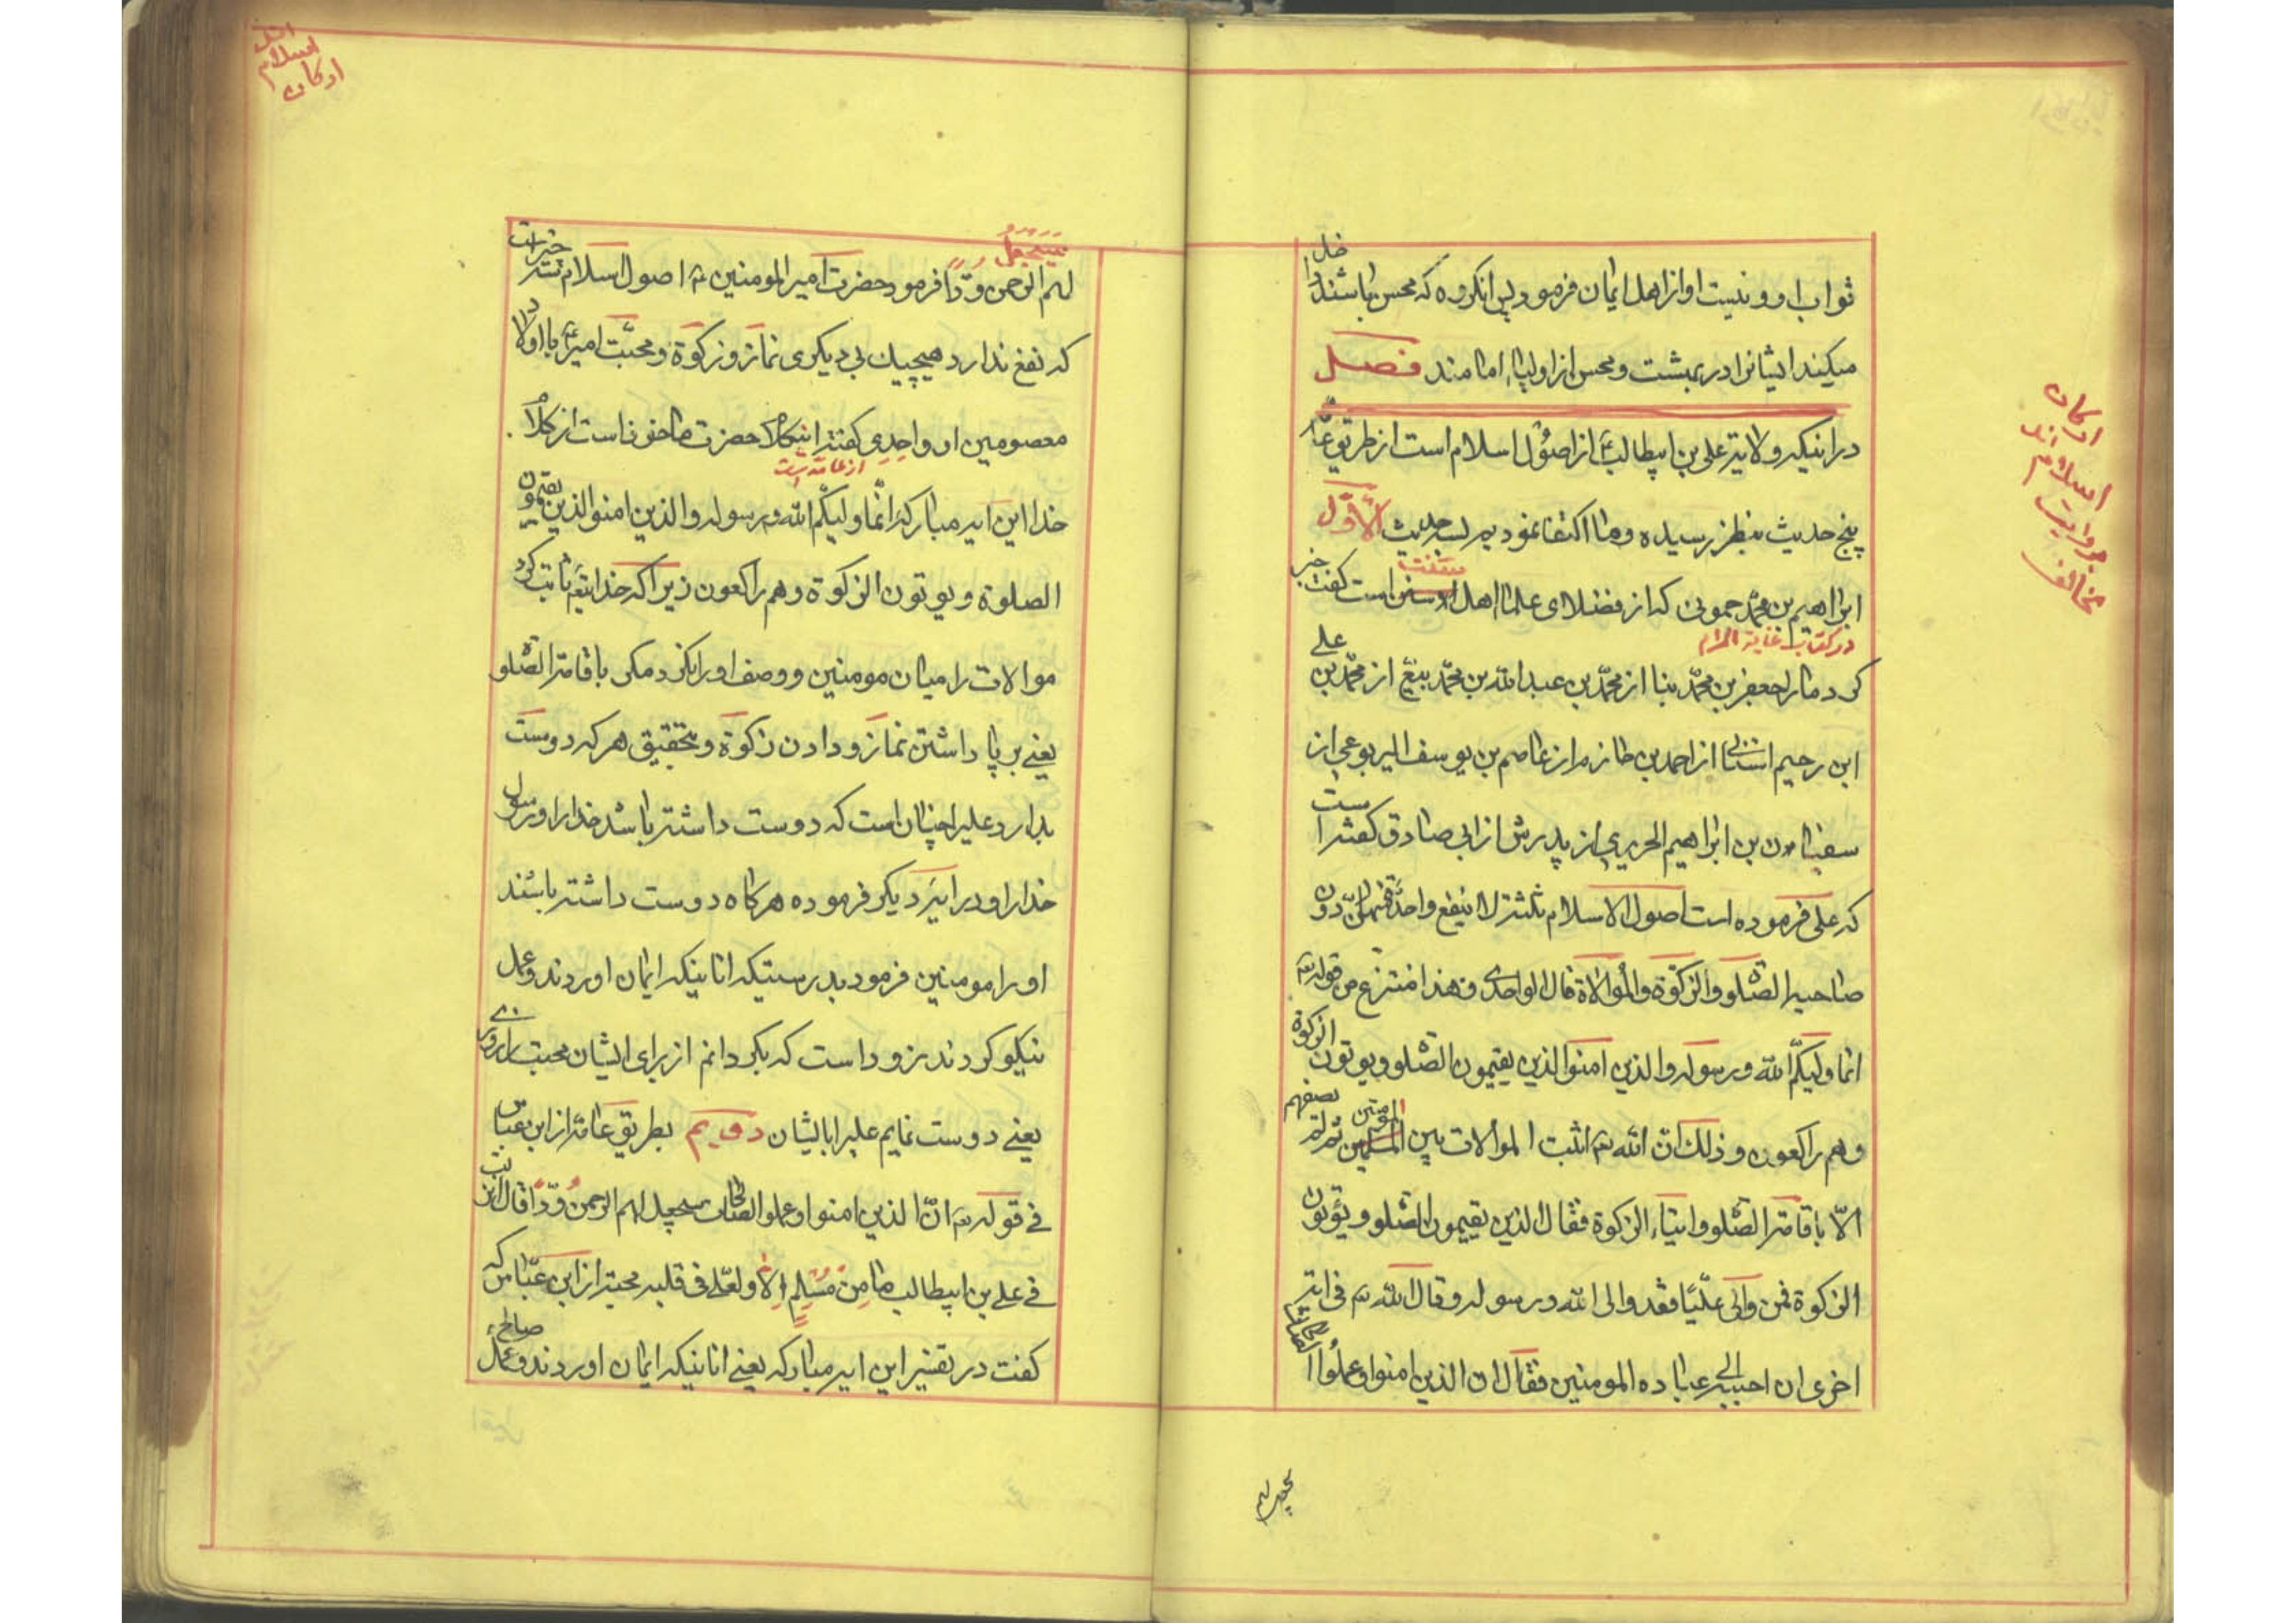 ثواب او و نیست او از اهل ایمان فرمود پس انکروه که محسن باشند داخل
میکند ایشانرا در بهشت و محسن از اولیاء امامند فصل
در اینکه ولایة علی بن ابیطالب از اصول اسلام است از طریق عامه
پنج حدیث بنظر رسیده و ما اکتفا نمودیم بسه حدیث الاول
ابراهیم بن محمد حموینی که از فضلای علماء اهل سنت است گفت خبر
در کتاب غایة المرام
کرد مارا جعفر بن محمد از محمد بن عبدالله بن محمد از محمد بن علی
ابن رحیم از احمد بن حازم از عاصم بن یوسف الیربوعی از
سفیان بن ابراهیم الحریری از پدرش از ابی صادق گفته است
که علی فرموده است اصول الاسلام ثلثة لا ینفع واحدة منهن دون
صاحبه الصلوة والزکوة والموالاة قال الواحدی و هذا منتزع من قوله
انما ولیکم الله و رسوله والذین امنوا الذین یقیمون الصلوة و یوتون الزکوة
و هم راکعون و ذلک ان الله اثبت الموالات بین المسلمین المؤمنین ثم لم یصفهم
الا باقامة الصلوة و ایتاء الزکوة فقال الذین یقیمون الصلوة و یؤتون
الزکوة فمن والی علیا فقد والی الله و رسوله و قال الله فی ایة
اخری ان احبه الی عباده المومنین فقال ان الذین امنوا و عملوا الصالحات
سیجعل لهم
ارکان
اسلام اند
بروایت
مخالف
سیجعل
لهم الرحمن ودا فرمود حضرت امیر المومنین اصول اسلام سه چیز است
که نفع ندارد هیچیک بی دیگری نماز و زکوة و محبت امیر با اولاد
معصومین او واحدی گفته این کلام حضرت ماخوذ است از کلام
از عامه است
خدا این ایه مبارکه انما ولیکم الله و رسوله والذین امنوا الذین یقیمون
الصلوة و یوتون الزکوة و هم راکعون زیرا که خدایتعالی ثابت کرد
موالات را میان مومنین و وصف اورا نکرد مگر باقامة الصلوة
یعنی بر پا داشتن نماز و دادن زکوة و بتحقیق هر که دوست
بدارد علیرا چنان است که دوست داشته باشد خدا را و رسول
خدا را و در ایه دیگر فرموده هرگاه دوست داشته باشند
اورا مومنین فرمود بدرستیکه انانیکه ایمان اوردند و عمل
نیکو کردند زود است که بگردانم از برای ایشان محبت
یعنی دوست نمایم علیرا بایشان دویم بطریق عامه از ابن عباس
فی قوله ان الذین امنوا و عملوا الصالحات سیجعل لهم الرحمن ودا قال نزلت
فی علی بن ابیطالب ما من مسلم الا و لعلی فی قلبه محبة از ابن عباس که
گفت در تفسیر این ایه مبارکه یعنی انانیکه ایمان اوردند و عمل صالح
ارکان
اسلام
اند